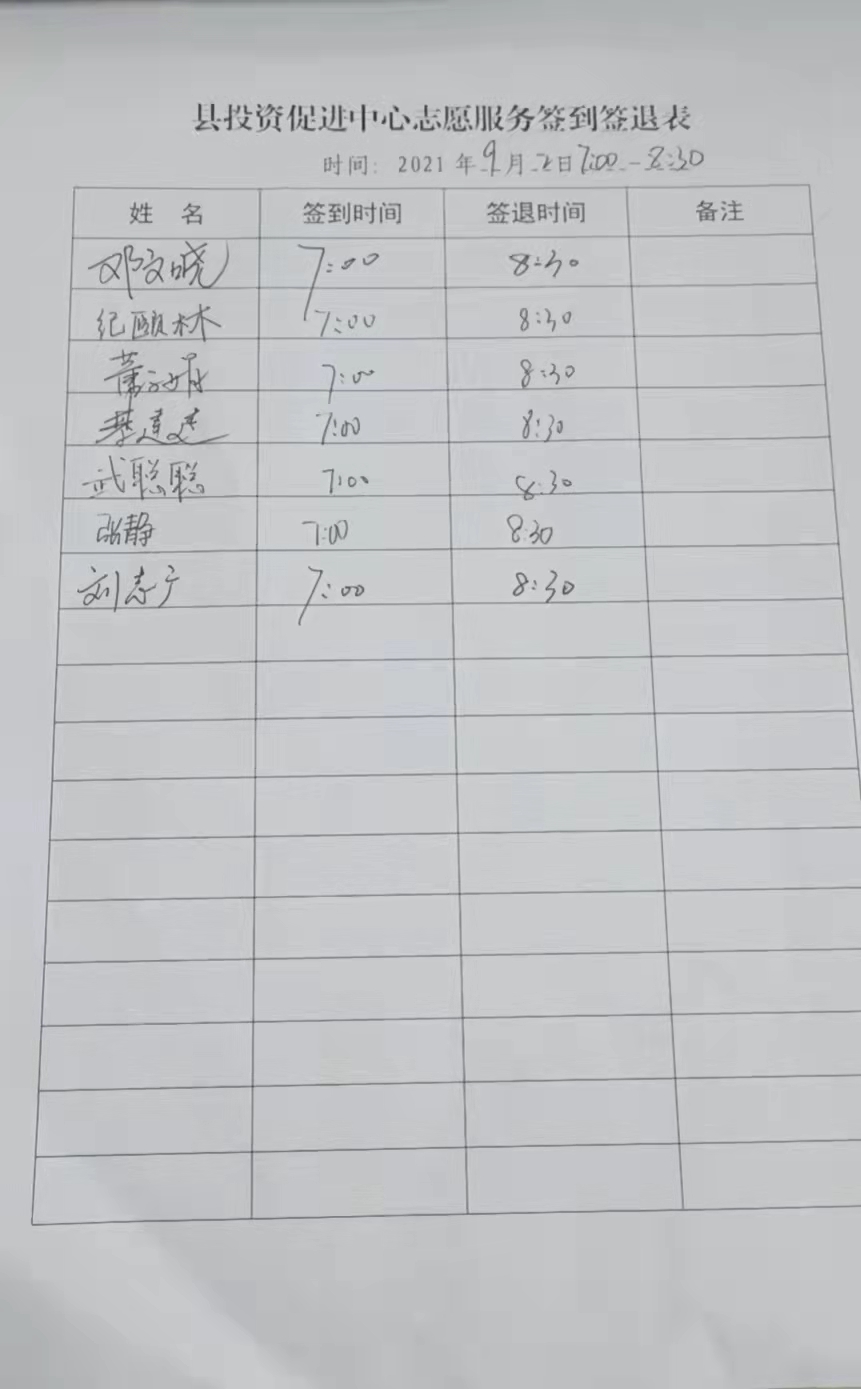 县投资促进中心志愿服务签到签退表
时间: 2021年9月2日7:00-8:30
姓 名 签到时间 签退时间 备注
邓文晓 7:00 8:30
纪颐林 7:00 8:30
7:00 8:30
7:00 8:30
武聪聪 7:00 8:30
张静 7:00 8:30
刘志广 7:00 8:30